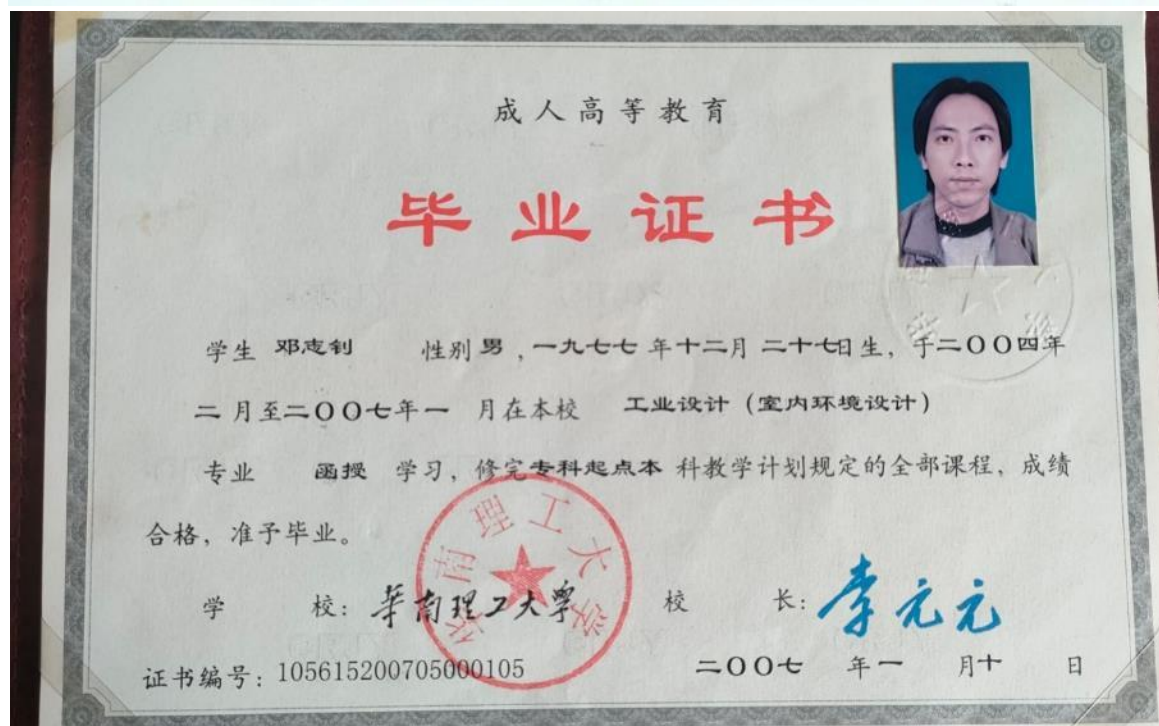 成人高等教育
毕业证书
学生 邓志钊 性别 男，一九七七 年十二月 二十七日生，于二〇〇四年
二 月至二〇〇七年一 月在本校 工业设计（室内环境设计）
专业 函授 学习，修完专科起点本 科教学计划规定的全部课程，成绩
合格，准予毕业。
学 校：华南理工大学 校 长：李元元
华南理工大学
证书编号：105615200705000105 二〇〇七 年一 月十 日